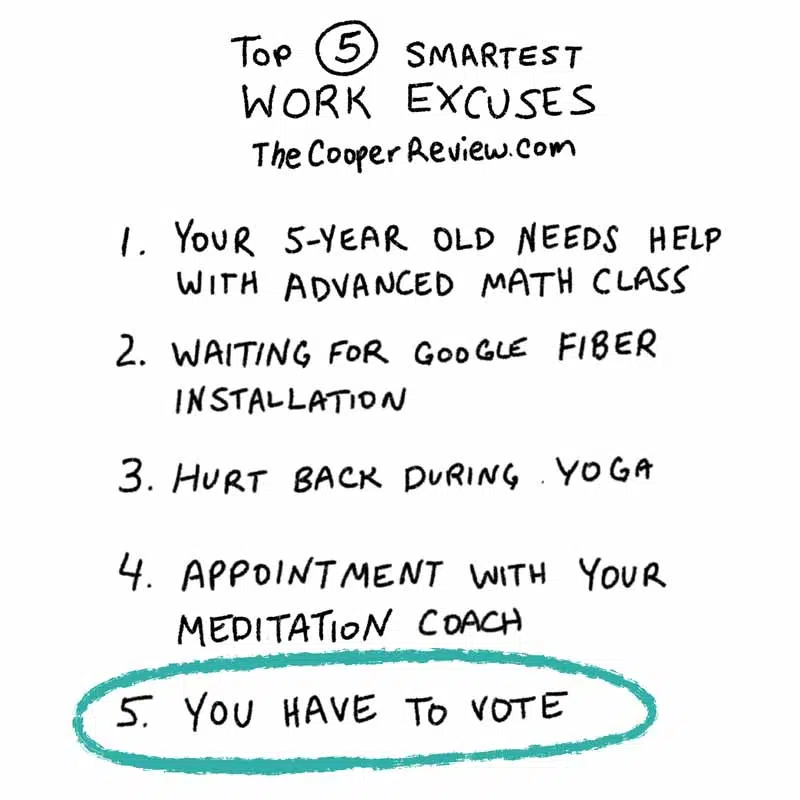 TOP 5 SMARTEST
WORK EXCUSES
TheCooperReview.com
1. YOUR 5-YEAR OLD NEEDS HELP
WITH ADVANCED MATH CLASS
2. WAITING FOR GOOGLE FIBER
INSTALLATION
3. HURT BACK DURING YOGA
4. APPOINTMENT WITH YOUR
MEDITATION COACH
5. YOU HAVE TO VOTE